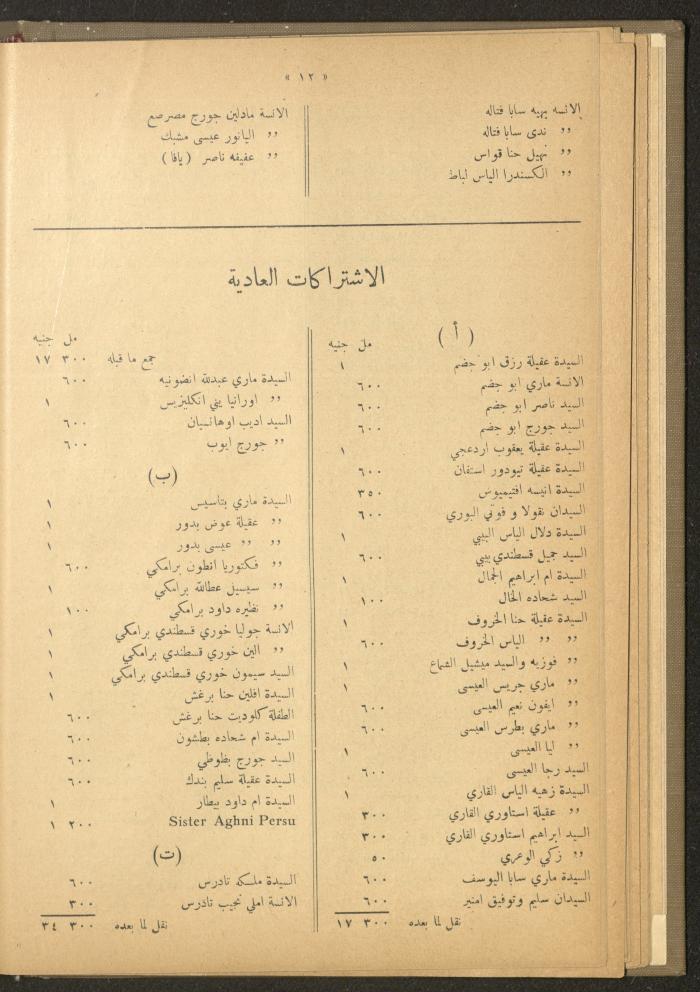 « ١٢ »
الانسه بهيه سابا فتاله
,, ندى سابا فتاله
,, نهيل حنا قواس
,, الكسندرا الياس لباط
الانسة مادلين جورج مصرصع
,, اليانور عيسى مشبك
,, عفيفه ناصر ( يافا )
الاشتراكات العادية
( أ )
مل جنيه
السيدة عقيلة رزق ابو جضم ١
الانسة ماري ابو جضم ٦٠٠
السيد ناصر ابو جضم ٦٠٠
السيد جورج ابو جضم ٦٠٠
السيدة عقيلة يعقوب اردعجي ١
السيدة عقيلة تيودور استفان ٦٠٠
السيدة انيسه افتيميوس ٣٥٠
السيدان نقولا و فوتي البوري ٦٠٠
السيدة دلال الياس الببي ١
السيد جميل قسطندي بيبي ٦٠٠
السيدة ام ابراهيم الجمال ١
السيد شحاده الخال ١٠٠
السيدة عقيلة حنا الخروف ١
,, ,, الياس الخروف ٦٠٠
,, فوزيه والسيد ميشيل الشماع ١
,, ماري جريس العيسى ١
,, ايفون نعيم العيسى ٦٠٠
,, ماري بطرس العيسى ٦٠٠
,, ليا العيسى ١
السيد رجا العيسى ٦٠٠
السيدة زهيه الياس القاري ١
,, عقيلة استاوري القاري ٣٠٠
السيد ابراهيم استاوري القاري ٣٠٠
,, زكي الوعري ٥٠
السيدة ماري سابا اليوسف ٦٠٠
السيدان سليم وتوفيق امنير ٦٠٠
نقل لما بعده ٣٠٠ ١٧
مل جنيه
جمع ما قبله ٣٠٠ ١٧
السيدة ماري عبدالله انضونيه ٦٠٠
,, اورانيا يني انكليزيس ١
السيد اديب اوهانسيان ٦٠٠
,, جورج ايوب ٦٠٠
(ب)
السيدة ماري بتاسيس ١
,, عقيلة عوض بدور ١
,, ,, عيسى بدور ١
,, فكتوريا انطون برامكي ٦٠٠
,, سيسيل عطالله برامكي ١
,, نظيره داود برامكي ١٠٠
الانسة جوليا خوري قسطندي برامكي ١
,, الين خوري قسطندي برامكي ١
السيد سيمون خوري قسطندي برامكي ١
السيدة افلين حنا برغش ١
الطفلة كلوديت حنا برغش ٦٠٠
السيدة ام شحاده بطشون ٦٠٠
السيد جورج بظوظي ٦٠٠
السيدة عقيلة سليم بندك ٦٠٠
السيدة ام داود بيطار ١
Sister Aghni Persu ٢٠٠ ١
(ت)
السيدة ملكه تادرس ٦٠٠
الانسة املي نجيب تادرس ٣٠٠
نقل لما بعده ٣٠٠ ٣٤